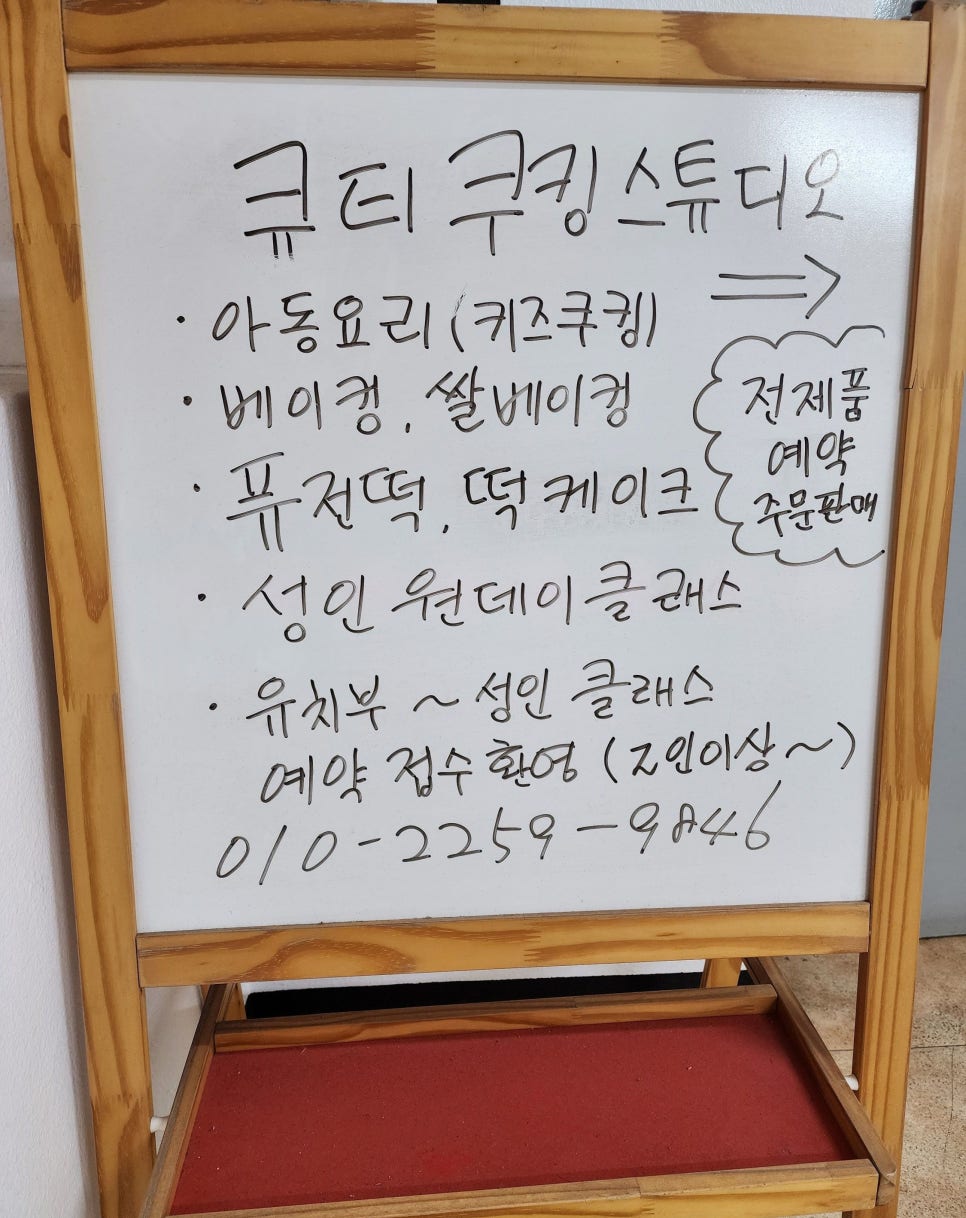 큐티 쿠킹스튜디오
⇒
· 아동요리 (키즈쿠킹)
· 베이킹, 쌀베이킹
· 퓨전떡, 떡케이크
전제품
예약
주문판매
· 성인 원데이클래스
· 유치부 ~ 성인 클래스
예약 접수 환영 (2인이상~)
010-2259-9846